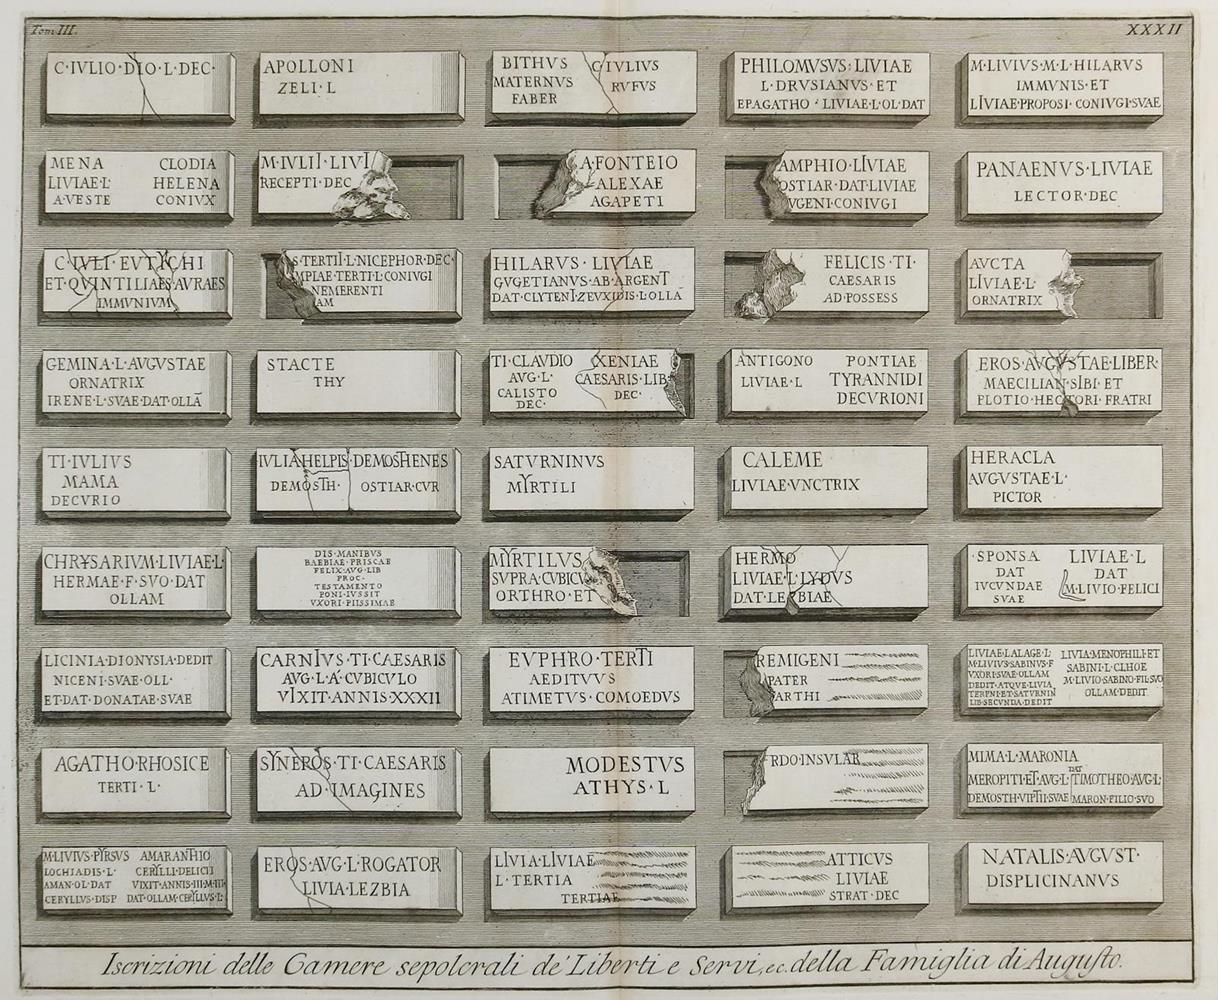 Tom III.
XXXII
C·IVLIO·DIO·L·DEC·
APOLLONI
ZELI·L
BITHVS
MATERNVS
FABER
C·IVLIVS
RVFVS
PHILOMVSVS·LIVIAE
L·DRVSIANVS·ET
EPAGATHO·LIVIAE·L·OL·DAT
M·LIVIVS·M·L·HILARVS
IMMVNIS·ET
LIVIAE·PROPOSI·CONIVGI·SVAE
MENA
LIVIAE·L·
A·VESTE
CLODIA
HELENA
CONIVX
M·IVLII·LIVI
RECEPTI·DEC
A·FONTEIO
ALEXAE
AGAPETI
AMPHIO·LIVIAE
OSTIAR·DAT·LIVIAE
VGENI·CONIVGI
PANAENVS·LIVIAE
LECTOR·DEC
C·IVLI·EVTYCHI
ET·QVINTILIAES·AVRAES
IMMVNIVM
S·TERTII·L·NICEPHOR·DEC·
MPIAE·TERTI·L·CONIVGI
NEMERENTI
AM
HILARVS·LIVIAE
GVGETIANVS·AB·ARGENT
DAT·CLYTENI·ZEVXIDIS·L·OLLA
FELICIS·TI·
CAESARIS
AD·POSSESS
AVCTA
LIVIAE·L·
ORNATRIX
GEMINA·L·AVGVSTAE
ORNATRIX
IRENE·L·SVAE·DAT·OLLĀ
STACTE
THY
TI·CLAVDIO
AVG·L·
CALISTO
DEC·
XENIAE
CAESARIS·LIB
DEC·
ANTIGONO
LIVIAE·L
PONTIAE
TYRANNIDI
DECVRIONI
EROS·AVGVSTAE·LIBER·
MAECILIAN·SIBI·ET
PLOTIO·HECTORI·FRATRI
TI·IVLIVS
MAMA
DECVRIO
IVLIA·HELPIS·DEMOSTHENES
DEMOSTH·
OSTIAR·CVR
SATVRNINVS
MYRTILI
CALEME
LIVIAE·VNCTRIX
HERACLA
AVGVSTAE·L·
PICTOR
CHRYSARIVM·LIVIAE·L·
HERMAE·F·SVO·DAT
OLLAM
DIS·MANIBVS
BAEBIAE·PRISCAE
FELIX·AVG·LIB
PROC·
TESTAMENTO
PONI·IVSSIT
VXORI·PIISSIMAE
MYRTILVS
SVPRA·CVBICV
ORTHRO·ET
HERMO
LIVIAE·L·LYDVS
DAT·LEZBIAE
·SPONSA
DAT
IVCVNDAE
SVAE
LIVIAE·L
DAT
M·LIVIO·FELICI
LICINIA·DIONYSIA·DEDIT
NICENI·SVAE·OLL·
ET·DAT·DONATAE·SVAE
CARNIVS·TI·CAESARIS
AVG·L·A·CVBICVLO
VIXIT·ANNIS·XXXII
EVPHRO·TERTI
AEDITVVS
ATIMETVS·COMOEDVS
REMIGENI
PATER
ARTHI
LIVIAE·LALAGE·L·
M·LIVIVS·SABINVS·F
VXORI·SVAE·OLLAM
DEDIT·ATQVE·LIVIA
TERPNI·ET·SATVRNIN
LIB·SECVNDA·DEDIT
LIVIA·MENOPHILI·ET
SABINI·L·CLHOE
M·LIVIO·SABINO·FIL·SVO
OLLAM·DEDIT
AGATHO·RHOSICE
TERTI·L·
SYNEROS·TI·CAESARIS
AD·IMAGINES
MODESTVS
ATHYS·L
RDO·INSVLAR
MIMA·L·MARONIA
MEROPITI·ET·AVG·L·
DEMOSTH·VIPTII·SVAE
DAT
TIMOTHEO·AVG·L·
MARON·FILIO·SVO
M·LIVIVS·PYRSVS
LOCHIADIS·L·
AMAN·OL·DAT
CERYLLVS·DISP
AMARANTHO
CERYLLI·DELICII
VIXIT·ANNIS·III·M·III·
DAT·OLLAM·CERYLLVS·L·
EROS·AVG·L·ROGATOR
LIVIA·LEZBIA
LIVIA·LIVIAE
L·TERTIA
TERTIAE
ATTICVS
LIVIAE
STRAT·DEC
NATALIS·AVGVST·
DISPLICINANVS
Iscrizioni delle Camere sepolcrali de' Liberti e Servi, ec. della Famiglia di Augusto.